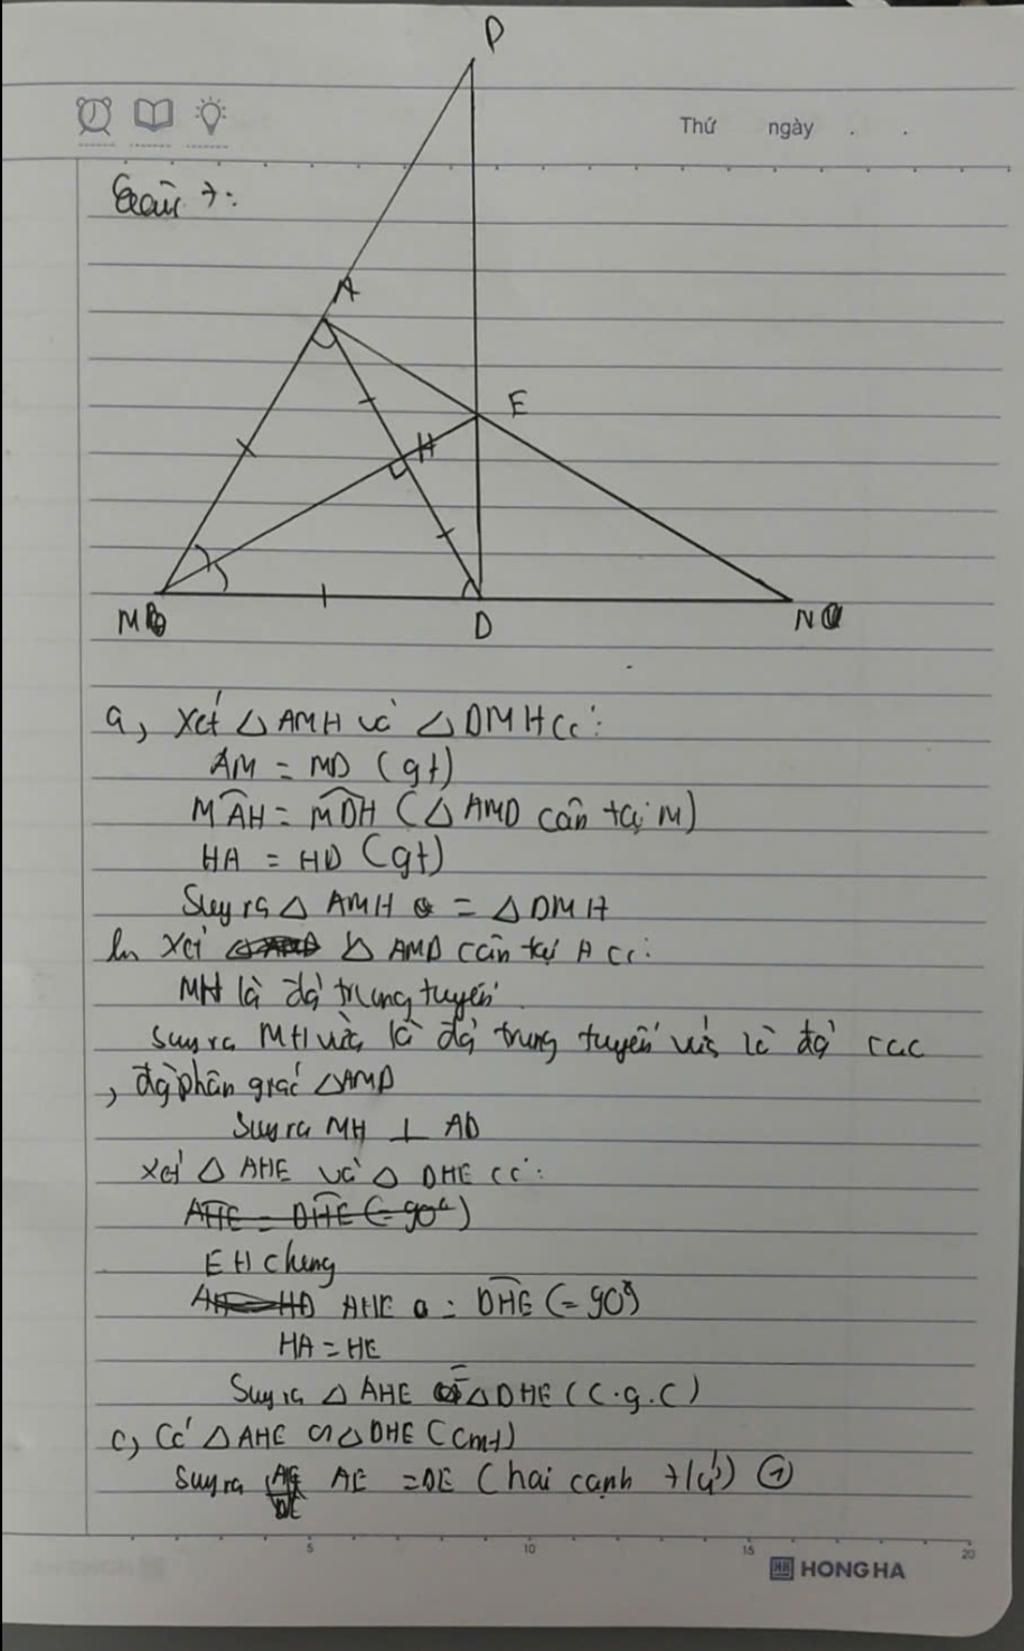 P
Thứ ngày . .
Câu 7:
A
E
H
M
D
N
a, Xét △ AMH và △ DMH có:
AM = MD (gt)
MAH = MDH (△ AMD cân tại M)
HA = HD (gt)
Suy ra △ AMH = △ DMH
Xét △ AMD cân tại A có:
MH là đg trung tuyến
Suy ra MH vừa là đg trung tuyến vừa là đg cao
, đg phân giác △AMD
Suy ra MH ⊥ AD
Xét △ AHE và △ DHE có:
AHE = DHE (=90°)
EH chung
AHE = DHE (=90°)
HA = HE
Suy ra △ AHE = △DHE (c.g.c)
c, Có △AHE ∽ △DHE (cmt)
Suy ra AE = DE (hai cạnh t/ứ) ①
5 10 15 20
HH HONG HA